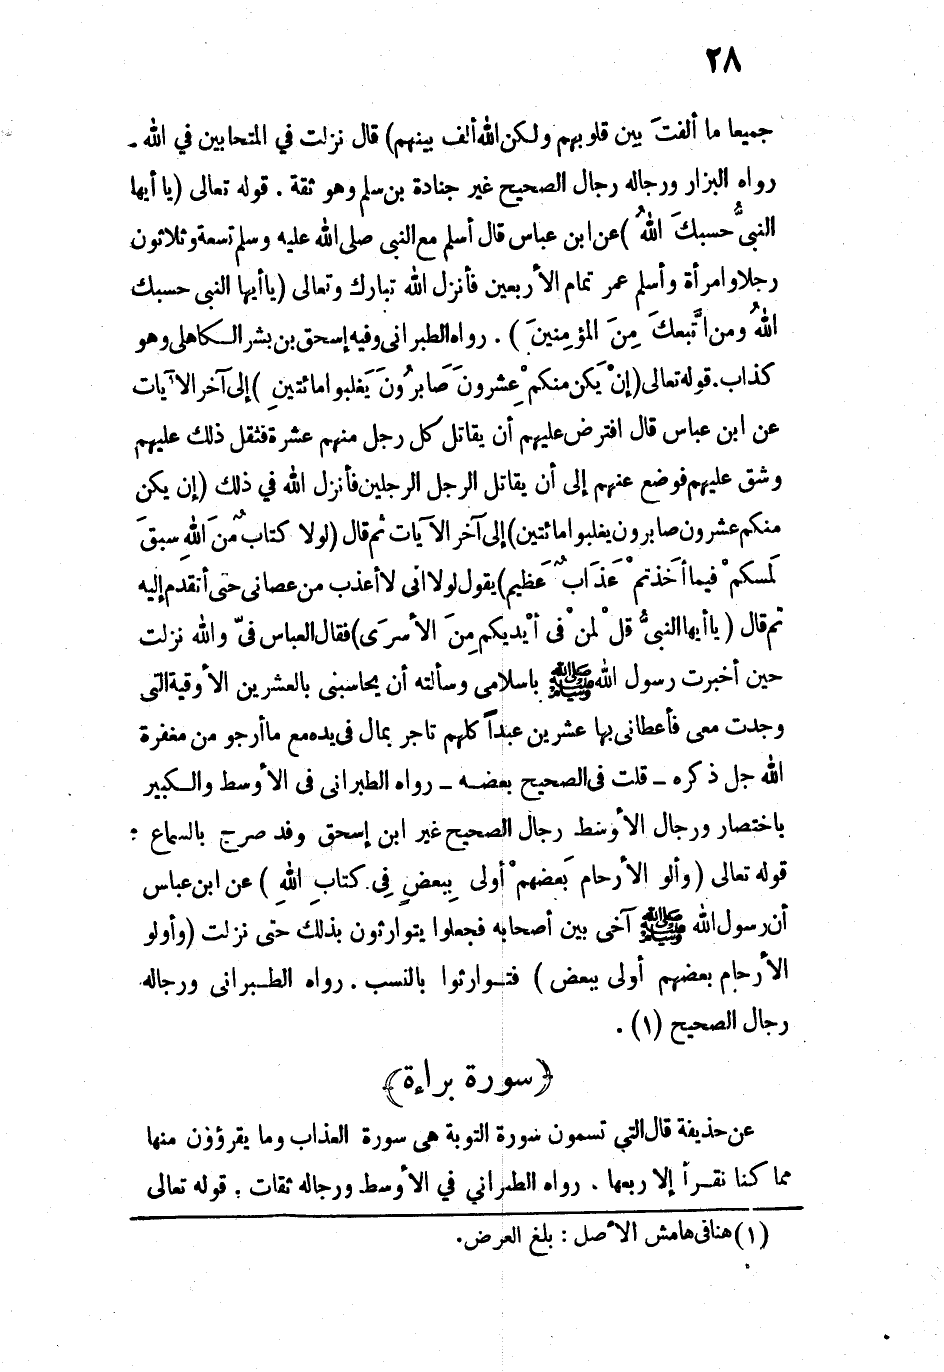 ٢٨
جميعا ما ألفتَ بين قلوبهم ولكن الله ألف بينهم) قال نزلت في المتحابين في الله .
رواه البزار ورجاله رجال الصحيح غير جنادة بن سلم وهو ثقة . قوله تعالى (يا أيها
النبيُّ حسبكَ اللهُ )عن ابن عباس قال أسلم مع النبى صلى الله عليه وسلم تسعة وثلاثون
رجلا وامرأة وأسلم عمر تمام الأربعين فأنزل الله تبارك وتعالى (يا أيها النبى حسبك
اللهُ ومن اتَّبعكَ مِنَ المؤمِنينَ ) . رواه الطبرانى وفيه إسحق بن بشر الكاهلى وهو
كذاب.قوله تعالى(إنْ يَكن منكمْ عِشرونَ صَابرُونَ يَغلبوا مائتينِ )إلى آخر الآيات
عن ابن عباس قال افترض عليهم أن يقاتل كل رجل منهم عشرة فثقل ذلك عليهم
وشق عليهم فوضع عنهم إلى أن يقاتل الرجل الرجلين فأنزل الله في ذلك (إن يكن
منكم عشرون صابرون يغلبوا مائتين)إلى آخر الآيات ثم قال (لولا كتابٌ منَ اللهِ سبقَ
لمَسكمْ فيما أخَذتمْ عَذَابٌ عَظيم)يقول لولا انى لا أعذب من عصانى حتى أتقدم إليه
ثم قال ( يا أيها النبىُّ قلْ لمنْ فى أيْديكم مِنَ الأسرَى)فقال العباس فىّ والله نزلت
حين أخبرت رسول الله ﷺ باسلامى وسألته أن يحاسبنى بالعشرين الأوقية التى
وجدت معى فأعطانى بها عشرين عبداً كلهم تاجر بمال فى يده مع ما أرجو من مغفرة
الله جل ذكره ــ قلت فى الصحيح بعضه ــ رواه الطبرانى فى الأوسط والكبير
باختصار ورجال الأوسط رجال الصحيح غير ابن إسحق وقد صرح بالسماع :
قوله تعالى ( وألو الأرحام بَعضهمْ أولى بِبعضٍ فِى كتابِ اللهِ ) عن ابن عباس
أن رسول الله ﷺ آخى بين أصحابه فجعلوا يتوارثون بذلك حتى نزلت (وأولو
الأرحام بعضهم أولى ببعض ) فتوارثوا بالنسب . رواه الطبرانى ورجاله
رجال الصحيح (١) .
﴿سورة براءة﴾
عن حذيفة قال التي تسمون سورة التوبة هى سورة العذاب وما يقرؤون منها
مما كنا نقرأ إلا ربعها . رواه الطبراني في الأوسط ورجاله ثقات . قوله تعالى
(١) هنا فى هامش الأصل : بلغ العرض.